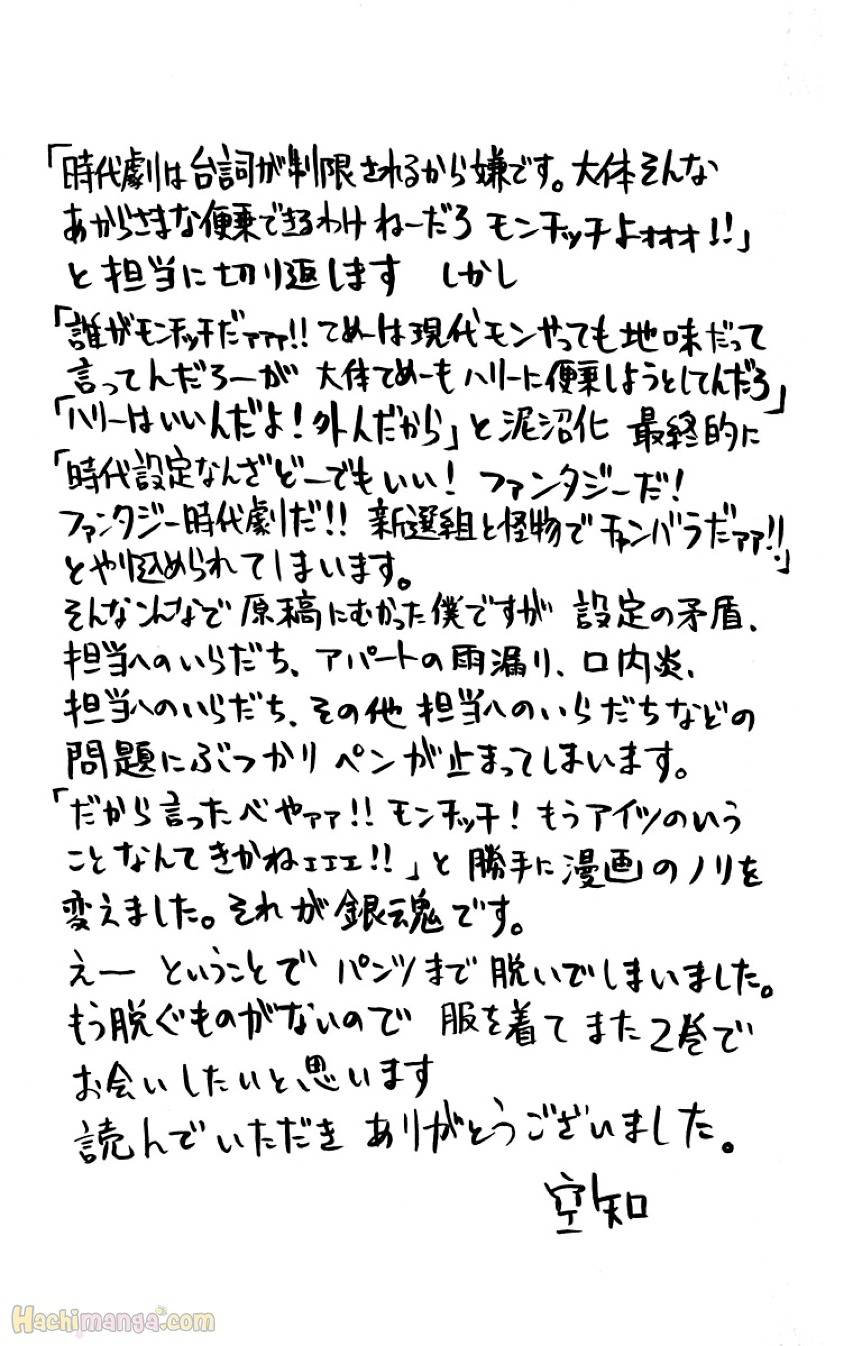 「時代劇は台詞が制限されるから嫌です。大体そんな
あからさまな便乗できるわけねーだろ モンチッチよォォォ!!」
と担当に切り返します しかし
「誰がモンチッチだァァァ!! てめーは現代モンやっても地味だって
言ってんだろーが 大体てめーもハリーに便乗しようとしてんだろ」
「ハリーはいいんだよ!外人だから」と泥沼化 最終的に
「時代設定なんざどーでもいい! ファンタジーだ!
ファンタジー時代劇だ!! 新選組と怪物でチャンバラだァァ!!」
とやり込められてしまいます。
そんなこんなで 原稿にむかった僕ですが 設定の矛盾、
担当へのいらだち、アパートの雨漏り、口内炎、
担当へのいらだち、その他 担当へのいらだちなどの
問題にぶつかり ペンが止まってしまいます。
「だから言ったべやァァ!! モンチッチ! もうアイツのいう
ことなんてきかねェェェ!!」と 勝手に漫画のノリを
変えました。それが銀魂です。
えー ということで パンツまで脱いでしまいました。
もう脱ぐものがないので 服を着て また2巻で
お会いしたいと思います
読んでいただき ありがとうございました。
空知
Hachimanga.com